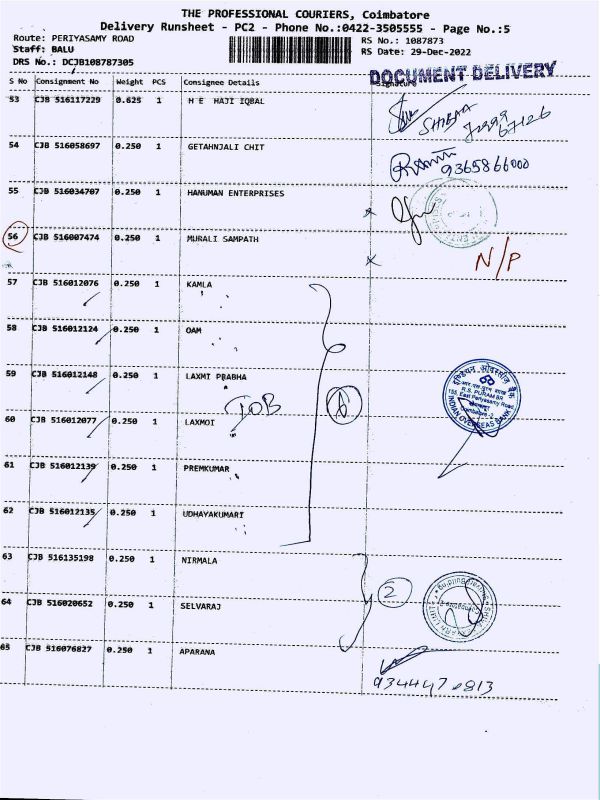 THE PROFESSIONAL COURIERS, Coimbatore
Delivery Runsheet - PC2 - Phone No.:0422-3505555 - Page No.:5
Route: PERIYASAMY ROAD RS No.: 1087873
Staff: BALU RS Date: 29-Dec-2022
DRS No.: DCJB108787305
DOCUMENT DELIVERY
S No Consignment No Weight PCS Consignee Details Signature
53 CJB 516117229 0.625 1 H E HAJI IQBAL
54 CJB 516058697 0.250 1 GETAHNJALI CHIT
9365866000
55 CJB 516034707 0.250 1 HANUMAN ENTERPRISES
56 CJB 516007474 0.250 1 MURALI SAMPATH
N/P
57 CJB 516012076 0.250 1 KAMLA
58 CJB 516012124 0.250 1 OAM
59 CJB 516012148 0.250 1 LAXMI PRABHA
IOB
6
इण्डियन ओवरसीज़ बैंक
R.S. PURAM BR
INDIAN OVERSEAS BANK
60 CJB 516012077 0.250 1 LAXMOI
61 CJB 516012139 0.250 1 PREMKUMAR
62 CJB 516012135 0.250 1 UDHAYAKUMARI
63 CJB 516135198 0.250 1 NIRMALA
2
64 CJB 516020652 0.250 1 SELVARAJ
65 CJB 516076827 0.250 1 APARANA